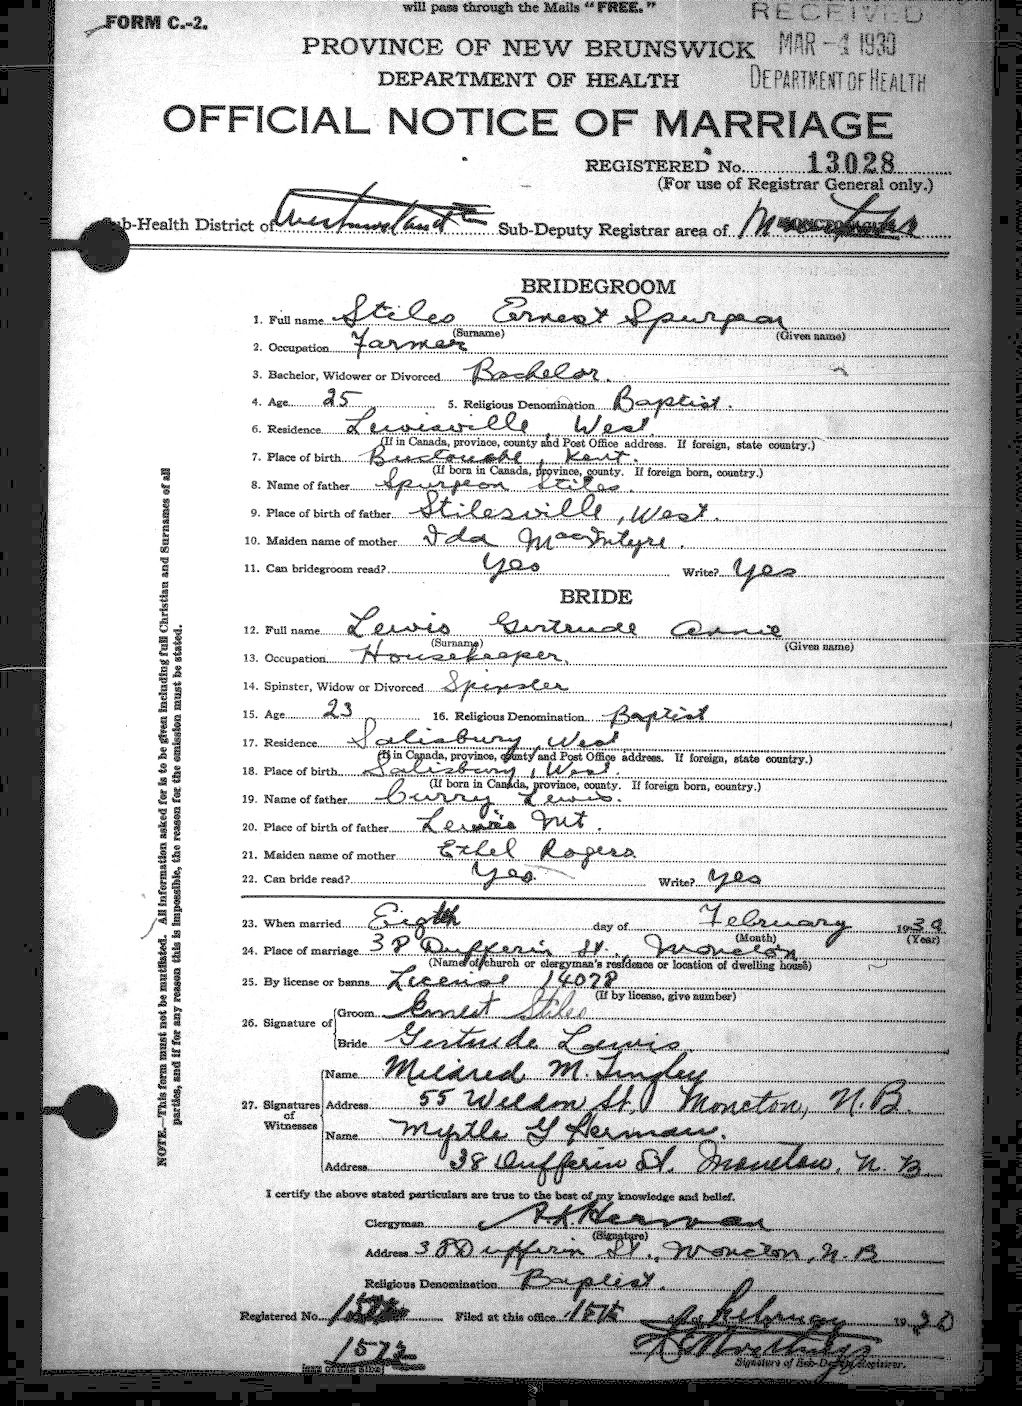 will pass through the Mails "FREE."
FORM C.-2.
RECEIVED
MAR -4 1930
DEPARTMENT OF HEALTH
PROVINCE OF NEW BRUNSWICK
DEPARTMENT OF HEALTH
OFFICIAL NOTICE OF MARRIAGE
REGISTERED No. 13028
(For use of Registrar General only.)
Sub-Health District of Westmorland Sub-Deputy Registrar area of
BRIDEGROOM
1. Full name Stiles Ernest Spurgeon
(Surname) (Given name)
2. Occupation Farmer
3. Bachelor, Widower or Divorced Bachelor.
4. Age 25 5. Religious Denomination Baptist.
6. Residence Lewisville, West.
(If in Canada, province, county and Post Office address. If foreign, state country.)
7. Place of birth Buctouche, Kent.
(If born in Canada, province, county. If foreign born, country.)
8. Name of father Spurgeon Stiles.
9. Place of birth of father Stilesville, West.
10. Maiden name of mother Ida MacIntyre.
11. Can bridegroom read? Yes Write? Yes
BRIDE
12. Full name Lewis Gertrude Annie
(Surname) (Given name)
13. Occupation Housekeeper.
14. Spinster, Widow or Divorced Spinster
15. Age 23 16. Religious Denomination Baptist
17. Residence Salisbury, West
(If in Canada, province, county and Post Office address. If foreign, state country.)
18. Place of birth Salisbury, West.
(If born in Canada, province, county. If foreign born, country.)
19. Name of father Curry Lewis.
20. Place of birth of father Lewis Mt.
21. Maiden name of mother Ethel Rogers
22. Can bride read? Yes. Write? Yes
23. When married Eighth day of February 1930
(Month) (Year)
24. Place of marriage 38 Dufferin St., Moncton
(Name of church or clergyman's residence or location of dwelling house)
25. By license or banns License 14078
(If by license, give number)
26. Signature of
Groom Ernest Stiles
Bride Gertrude Lewis
27. Signatures of Witnesses
Name Mildred M. Tingley
Address 55 Weldon St., Moncton, N.B.
Name Myrtle G Herman.
Address 38 Dufferin St. Moncton, N. B
I certify the above stated particulars are true to the best of my knowledge and belief.
Clergyman Herman
(Signature)
Address 38 Dufferin St., Moncton, N.B
Religious Denomination Baptist.
Registered No. Filed at this office 15th February 19
1572
Signature of Sub-Deputy Registrar.
NOTE.—This form must not be mutilated. All information asked for is to be given including full Christian and Surnames of all
parties, and if for any reason this is impossible, the reason for the omission must be stated.